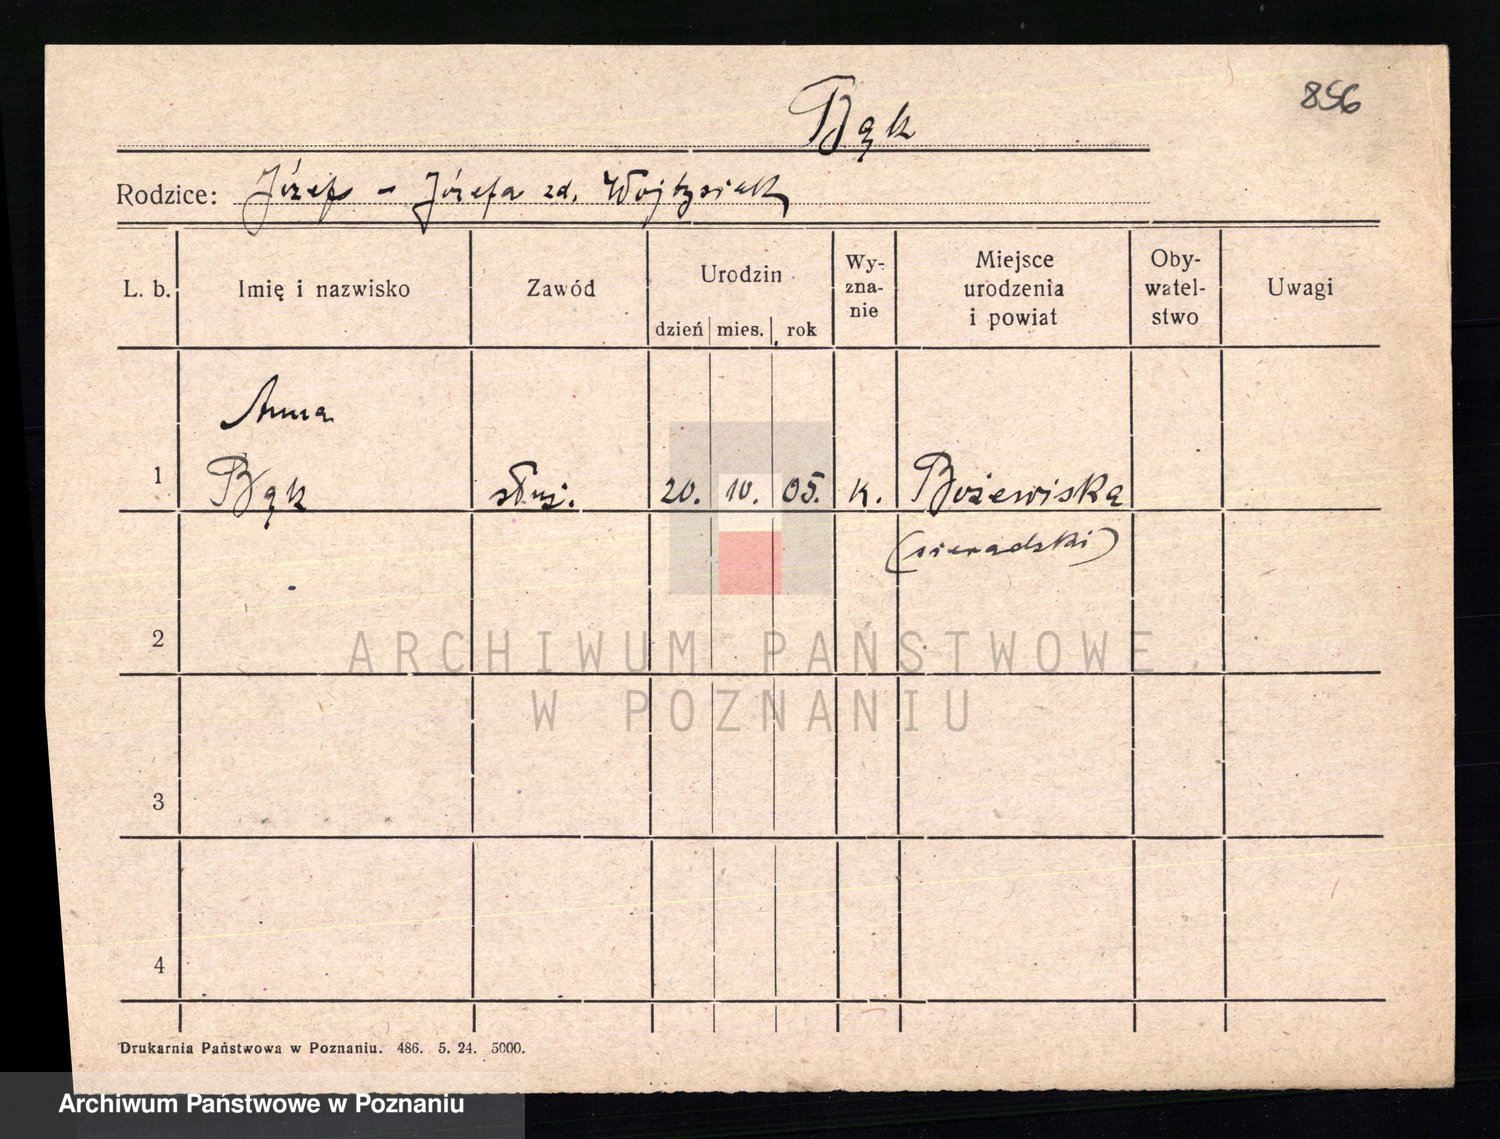 856
Bąk
Rodzice: Józef - Józefa zd. Wojtysiak
L. b. Imię i nazwisko Zawód Urodzin Wy-zna-nie Miejsce urodzenia i powiat Oby-watel-stwo Uwagi
dzień mies. rok
Anna
1 Bąk służ. 20. 10. 05. k. Bożewiska
(sieradzki)
2
ARCHIWUM PAŃSTWOWE
W POZNANIU
3
4
Drukarnia Państwowa w Poznaniu. 486. 5. 24. 5000.
Archiwum Państwowe w Poznaniu